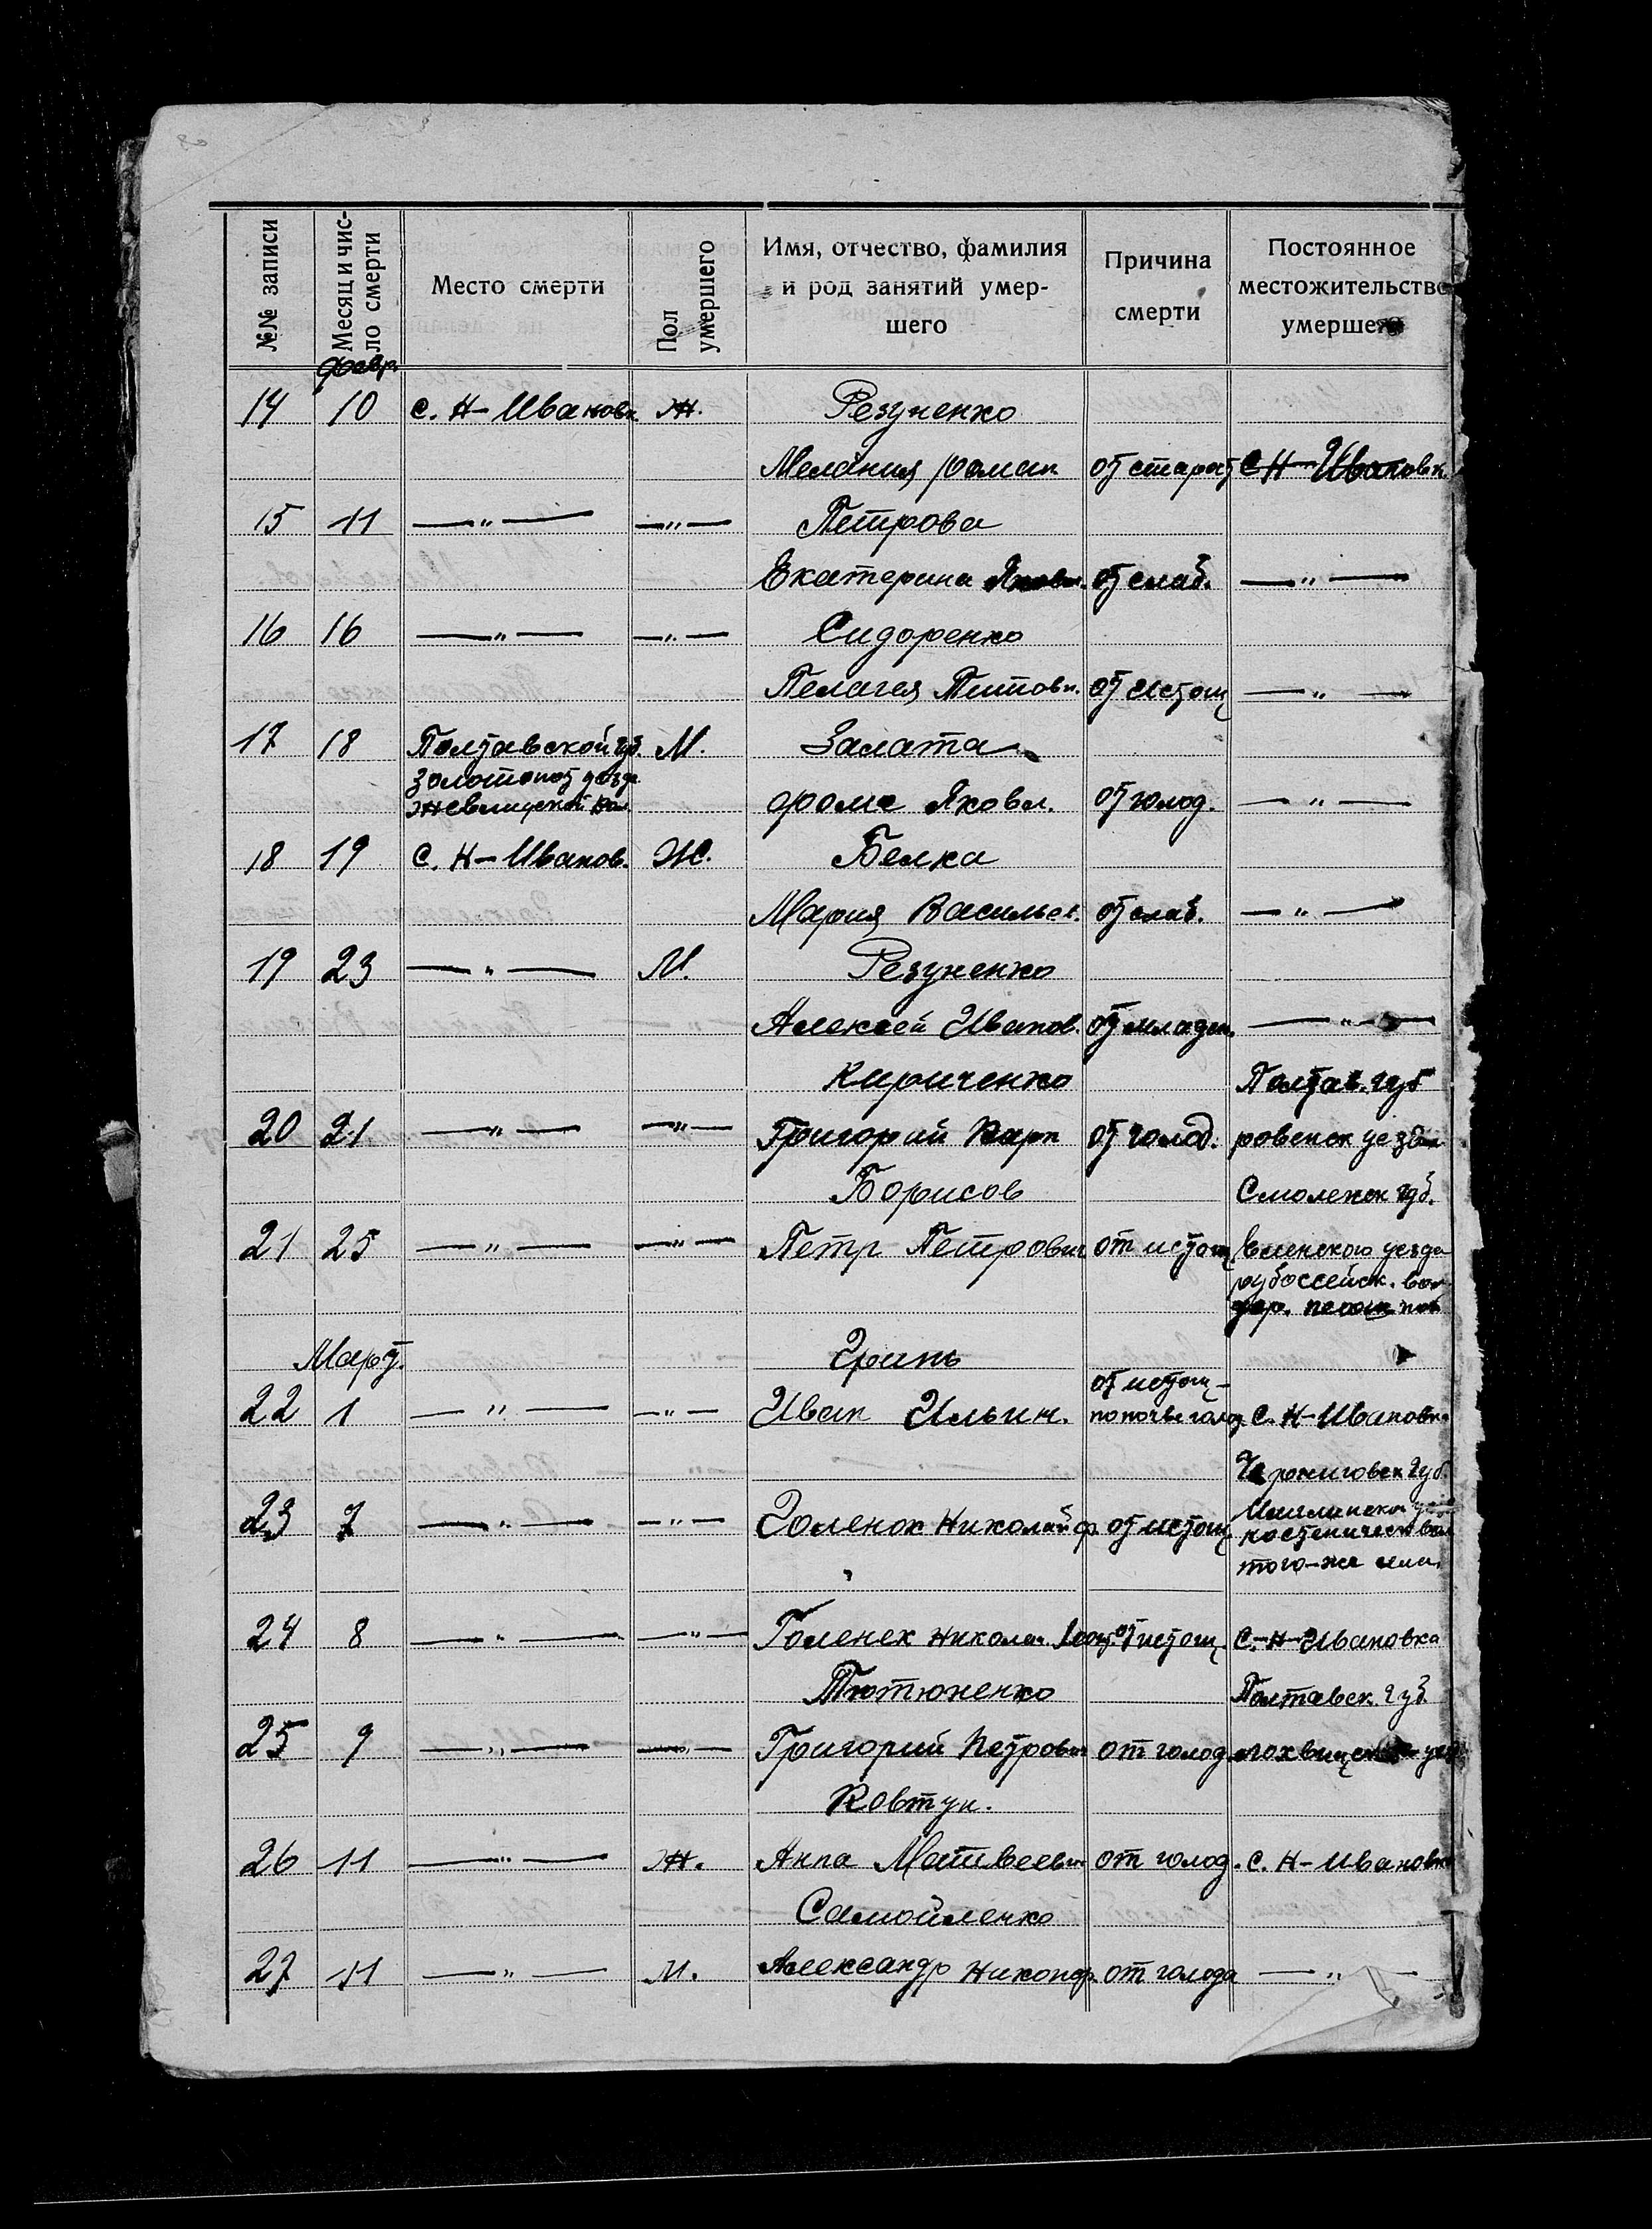 №№ записи
Месяц и чис-
ло смерти
Место смерти
Пол
умершего
Имя, отчество, фамилия
и род занятий умер-
шего
Причина
смерти
Постоянное
местожительство
умершего
февр.
14 10 с. Н-Ивановк. Ж. Резуненко
Мелания роман от старост с Н-Ивановк.
15 11 —„— —„— Петрова
Екатерина Яковл. от слаб. —„—
16 16 —„— —„— Сидоренко
Пелагея Титовн. от истощ —„—
17 18 Полтавской губ. М. Залата
золотонот уезда
волн. фома Яковл. от голод. —„—
18 19 с. Н-Иванов. Ж. Белка
Мария Васильев. от слаб. —„—
19 23 —„— М. Резуненко
Алексей Иванов. от младен. —„—
Кириченко Полтав. губ
20 21 —„— —„— Григорий Карп от голод. ровенск уезда
Борисов Смоленск губ.
21 25 —„— —„— Петр Петрович от истощ Еленского уезда
вол
дер.
Март. Гринь
от истощ-
22 1 —„— —„— Иван Ильич. по почве голод с. Н-Ивановка
Черниговск губ.
23 7 —„— —„—Голенок Николай ф. от истощ Мглинского уезд
костеническ вол
того-же села
24 8 —„— —„— Голенек николай от истощ. с.-Н-Ивановка
Тютюненко Полтавск. губ.
25 9 —„— —„— Григорий Петрович от голод лохвицск уез
Ковтун.
26 11 —„— Ж. Анна Матвеевн от голод. с. Н-Ивановка
Самойленко
27 11 —„— М. Александр Никонор от голода —„—